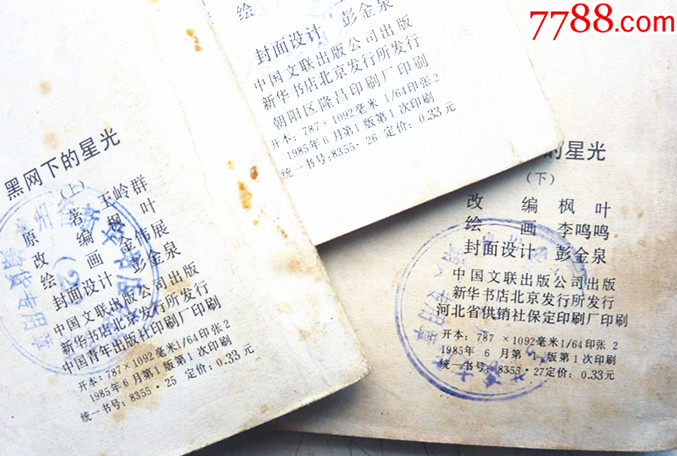 7788.com
黑网下的星光
(上)
原 著 王岭群
改 编 枫叶
绘 画 金伟展
封面设计 彭金泉
中国文联出版公司出版
新华书店北京发行所发行
中国青年出版社印刷厂印刷
开本:787×1092毫米1/64印张2
1985年6月第1版第1次印刷
统一书号:8355·25 定价:0.33元
绘
封面设计 彭金泉
中国文联出版公司出版
新华书店北京发行所发行
朝阳区隆昌印刷厂印刷
开本:787×1092毫米1/64印张2
1985年6月第1版第1次印刷
统一书号:8355·26 定价:0.33元
的星光
(下)
改 编 枫叶
绘 画 李鸣鸣
封面设计 彭金泉
中国文联出版公司出版
新华书店北京发行所发行
河北省供销社保定印刷厂印刷
开本:787×1092毫米1/64印张 2
1985年 6月第1版第1次印刷
统一书号:8355·27定价:0.33元